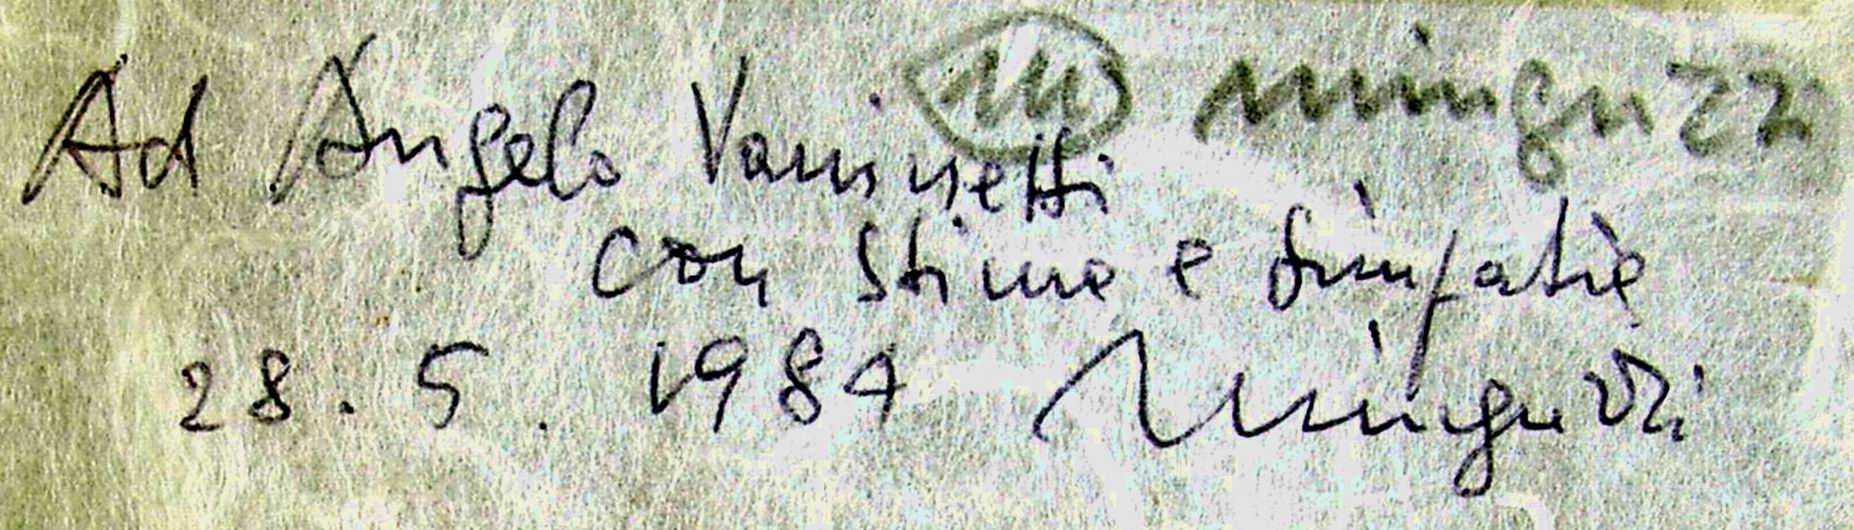 Ad Angelo Vaninetti
m minguzzi
con stima e simpatia
28.5.1984 Minguzzi